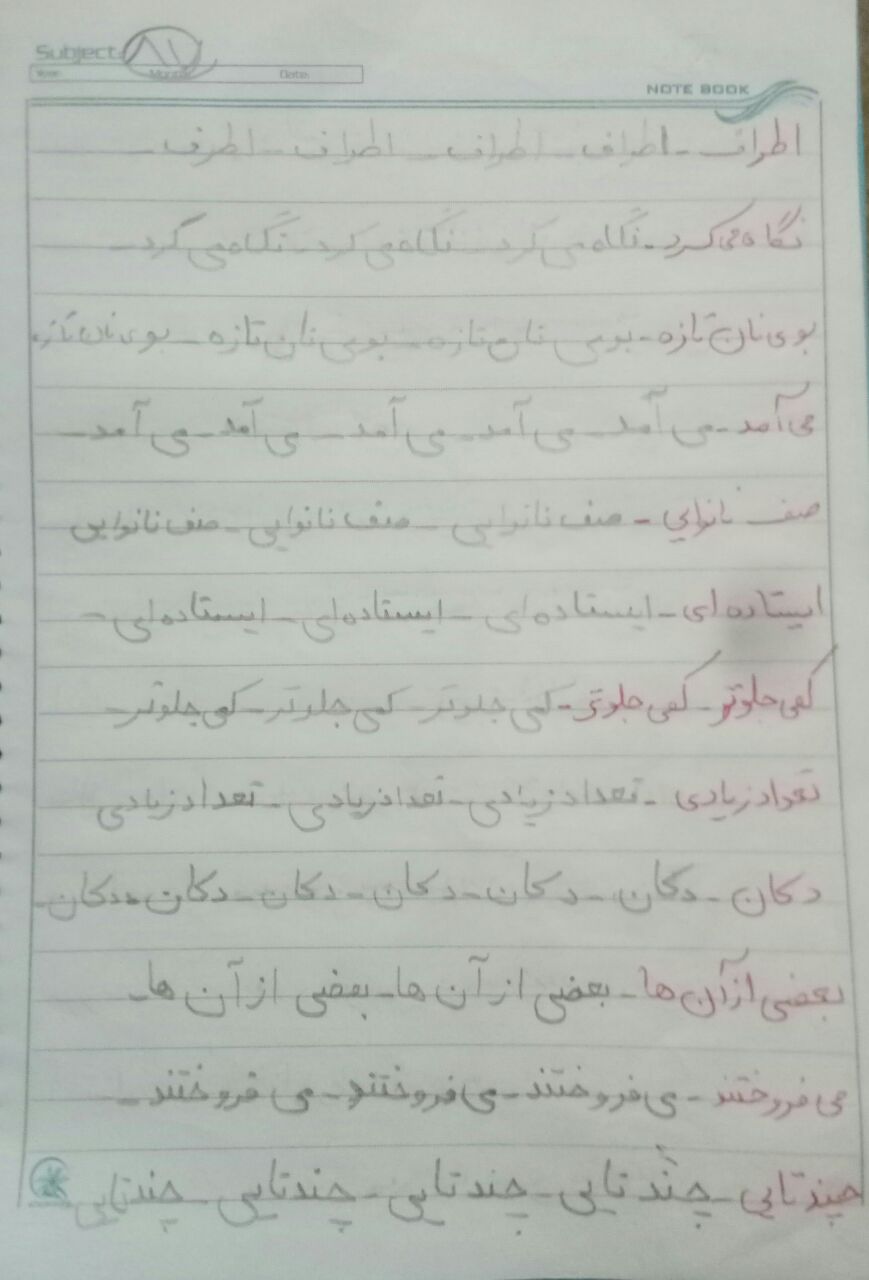 Subject: ۸۱
Year: Month: Date:
NOTE BOOK
اطراف - اطراف - اطراف - اطراف - اطرف -
نگاه می کرد - نگاه می کرد - نگاه می کرد - نگاه می کرد -
بوی نان تازه - بویی نان تازه - بویی نان تازه - بوی نان تازه
می آمد - می آمد - می آمد - می آمد - می آمد - می آمد -
صف نانوایی - صف نانوایی - صف نانوایی - صف نانوایی
ایستاده ای - ایستاده ای - ایستاده ای - ایستاده ای -
کمی جلوتر - کمی جلوتر - کمی جلوتر - کمی جلوتر - کمی جلوتر -
تعداد زیادی - تعداد زیادی - تعداد زیادی - تعداد زیادی
دکان - دکان - دکان - دکان - دکان - دکان - دکان -
بعضی از آن ها - بعضی از آن ها - بعضی از آن ها -
می فروختند - می فروختند - می فروختند - می فروختند -
چند تایی - چند تایی - چند تایی - چند تایی - چند تایی